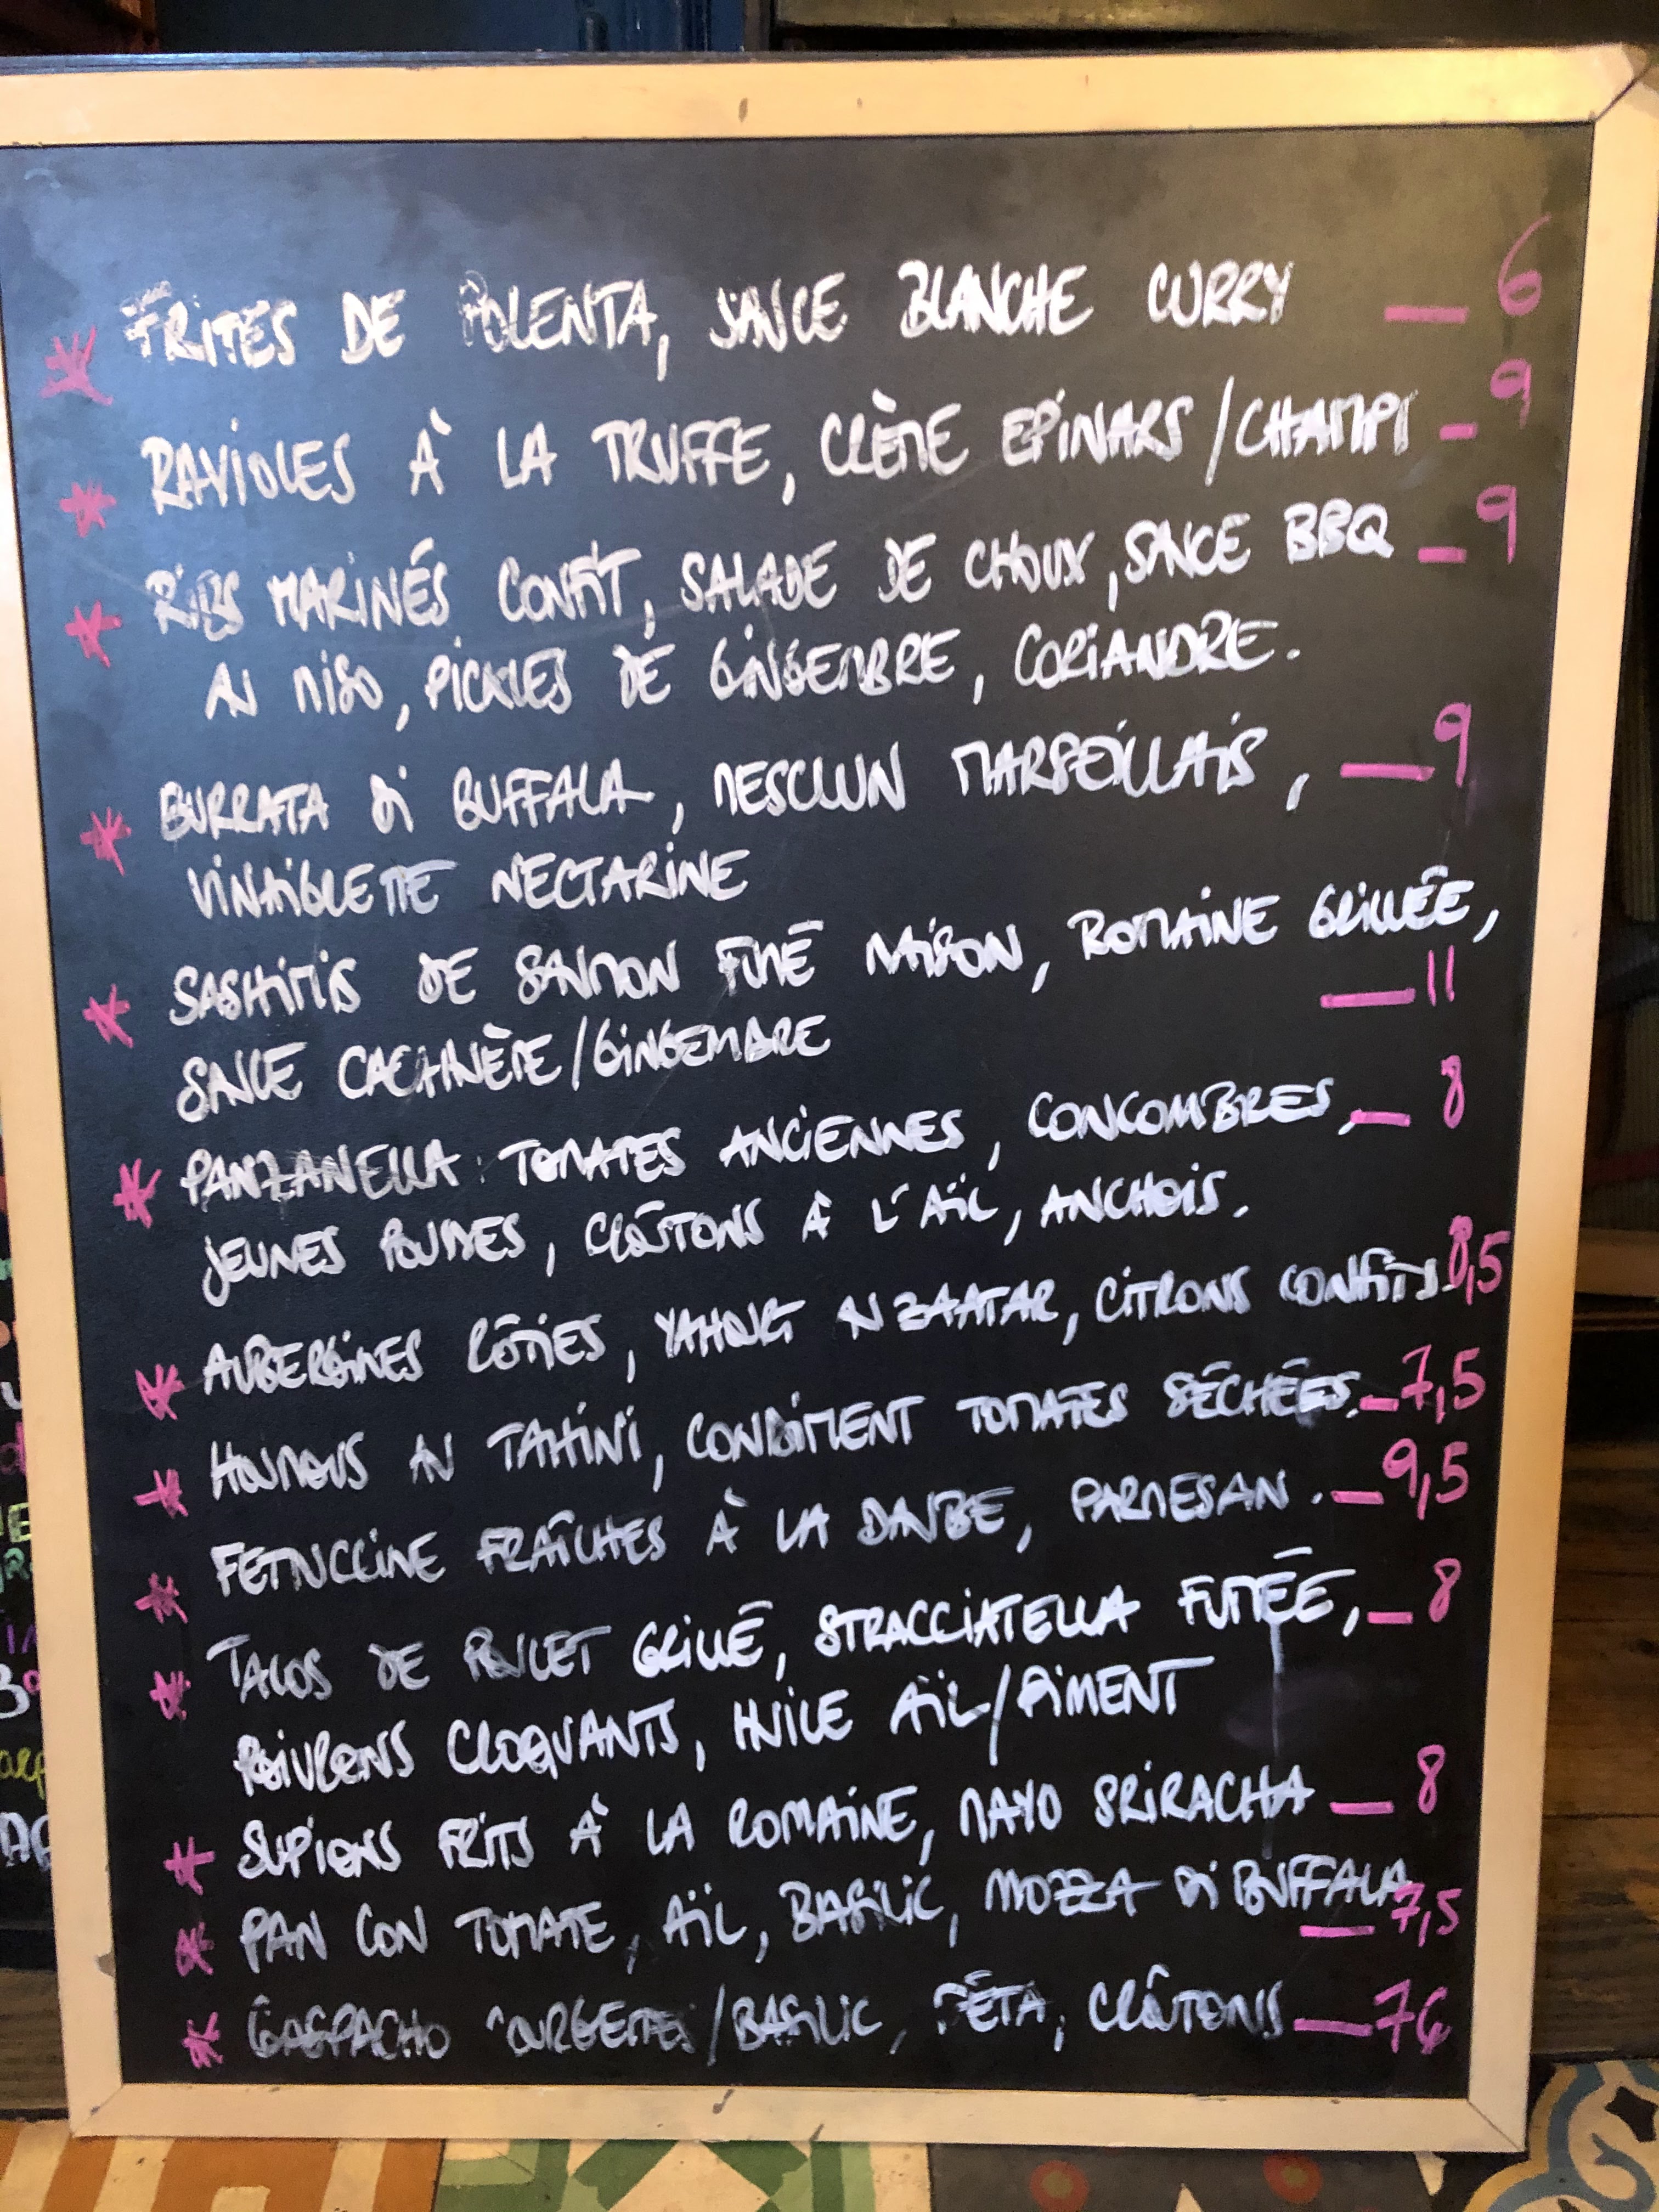 FRITES DE POLENTA, SAUCE BLANCHE CURRY — 6
RAVIOLES À LA TRUFFE, CRÈME EPINARS / CHAMPI - 9
RIBS MARINÉS CONFIT, SALADE DE CHOUX, SAUCE BBQ — 9
AU MISO, PICKLES DE GINGEMBRE, CORIANDRE.
BURRATA DI BUFFALA, MESCLUN MARSEILLAIS, — 9
VINAIGRETTE NECTARINE
SASHIMIS DE SAUMON FUMÉ MAISON, ROMAINE GRILLÉE,
— 11
SAUCE CACAHUÈTE / GINGEMBRE
PANZANELLA : TOMATES ANCIENNES, CONCOMBRES, — 8
JEUNES POUSSES, CROÛTONS À L'AÏL, ANCHOIS.
AUBERGINES RÔTIES, YAHOURT AU ZAATAR, CITRONS CONFITS. 8,5
HOUMOUS AU TAHINI, CONDIMENT TOMATES SÉCHÉES. — 7,5
FETUCCINE FRAÎCHES À LA DAUBE, PARMESAN. — 9,5
TACOS DE POULET GRILLÉ, STRACCIATELLA FUMÉE, — 8
POIVRONS CROQUANTS, HUILE AÏL/PIMENT
SUPIONS FRITS À LA ROMAINE, MAYO SRIRACHA — 8
PAN CON TOMATE, AÏL, BASILIC, MOZZA DI BUFFALA
— 7,5
GASPACHO COURGETTES / BASILIC, FÉTA, CROÛTONS —